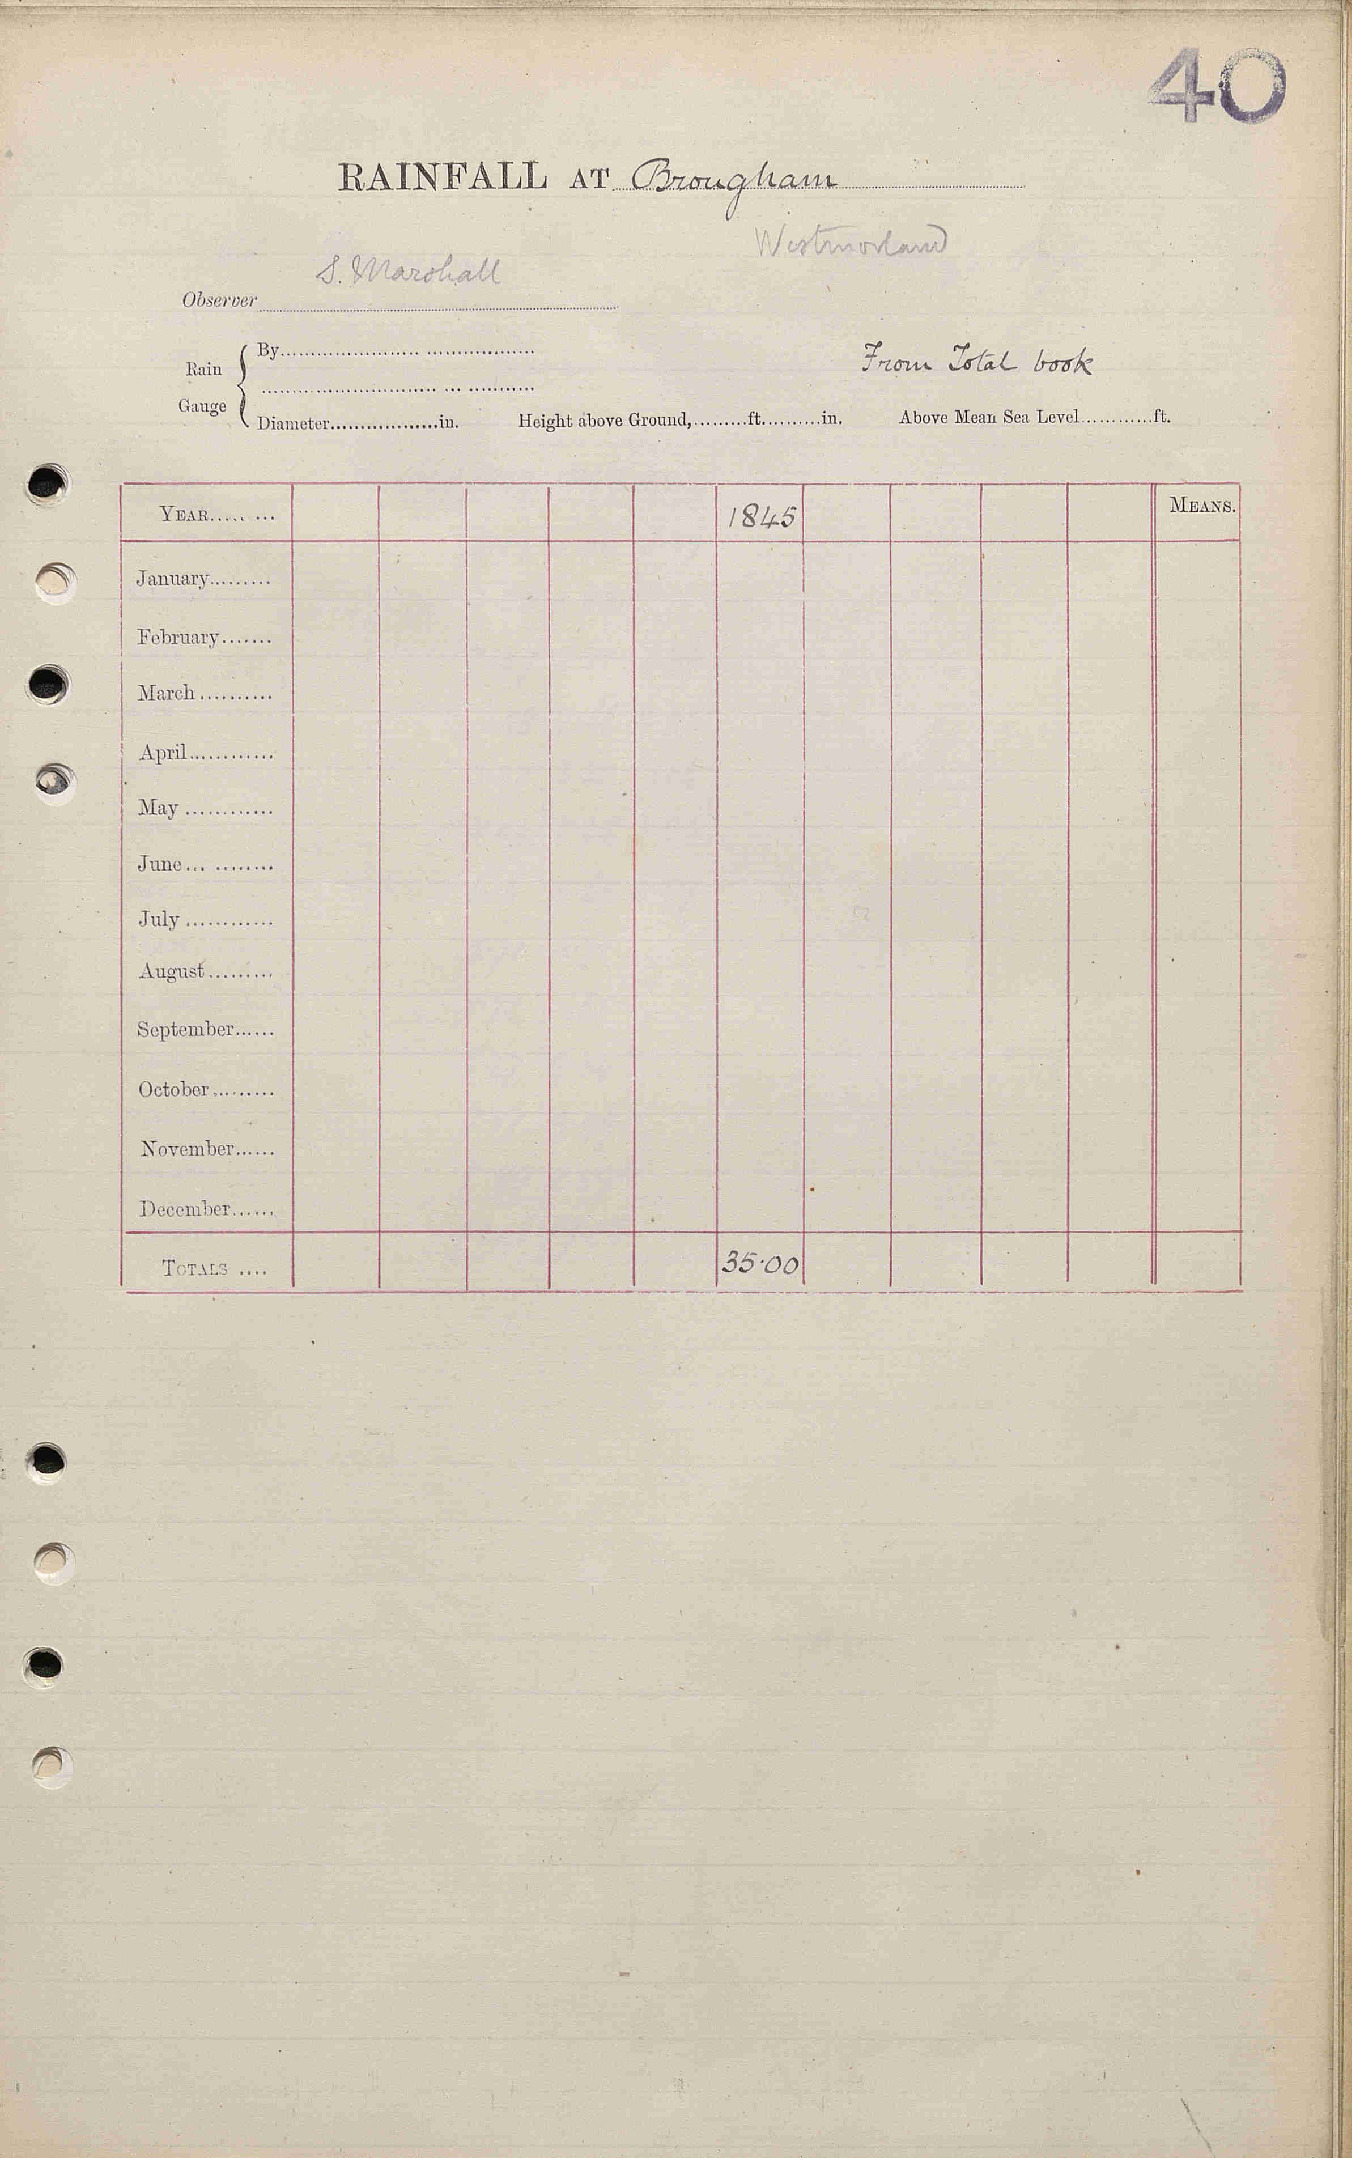 40
RAINFALL AT Brougham
Westmorland
S. Marshall
Observer
Rain Gauge
By
Diameter..................in. Height above Ground,.........ft..........in. Above Mean Sea Level............ft.
From Total book
YEAR........ 1845 MEANS.
January.........
February.......
March..........
April............
May............
June... ........
July............
August.........
September......
October.........
November......
December......
TOTALS .... 35·00